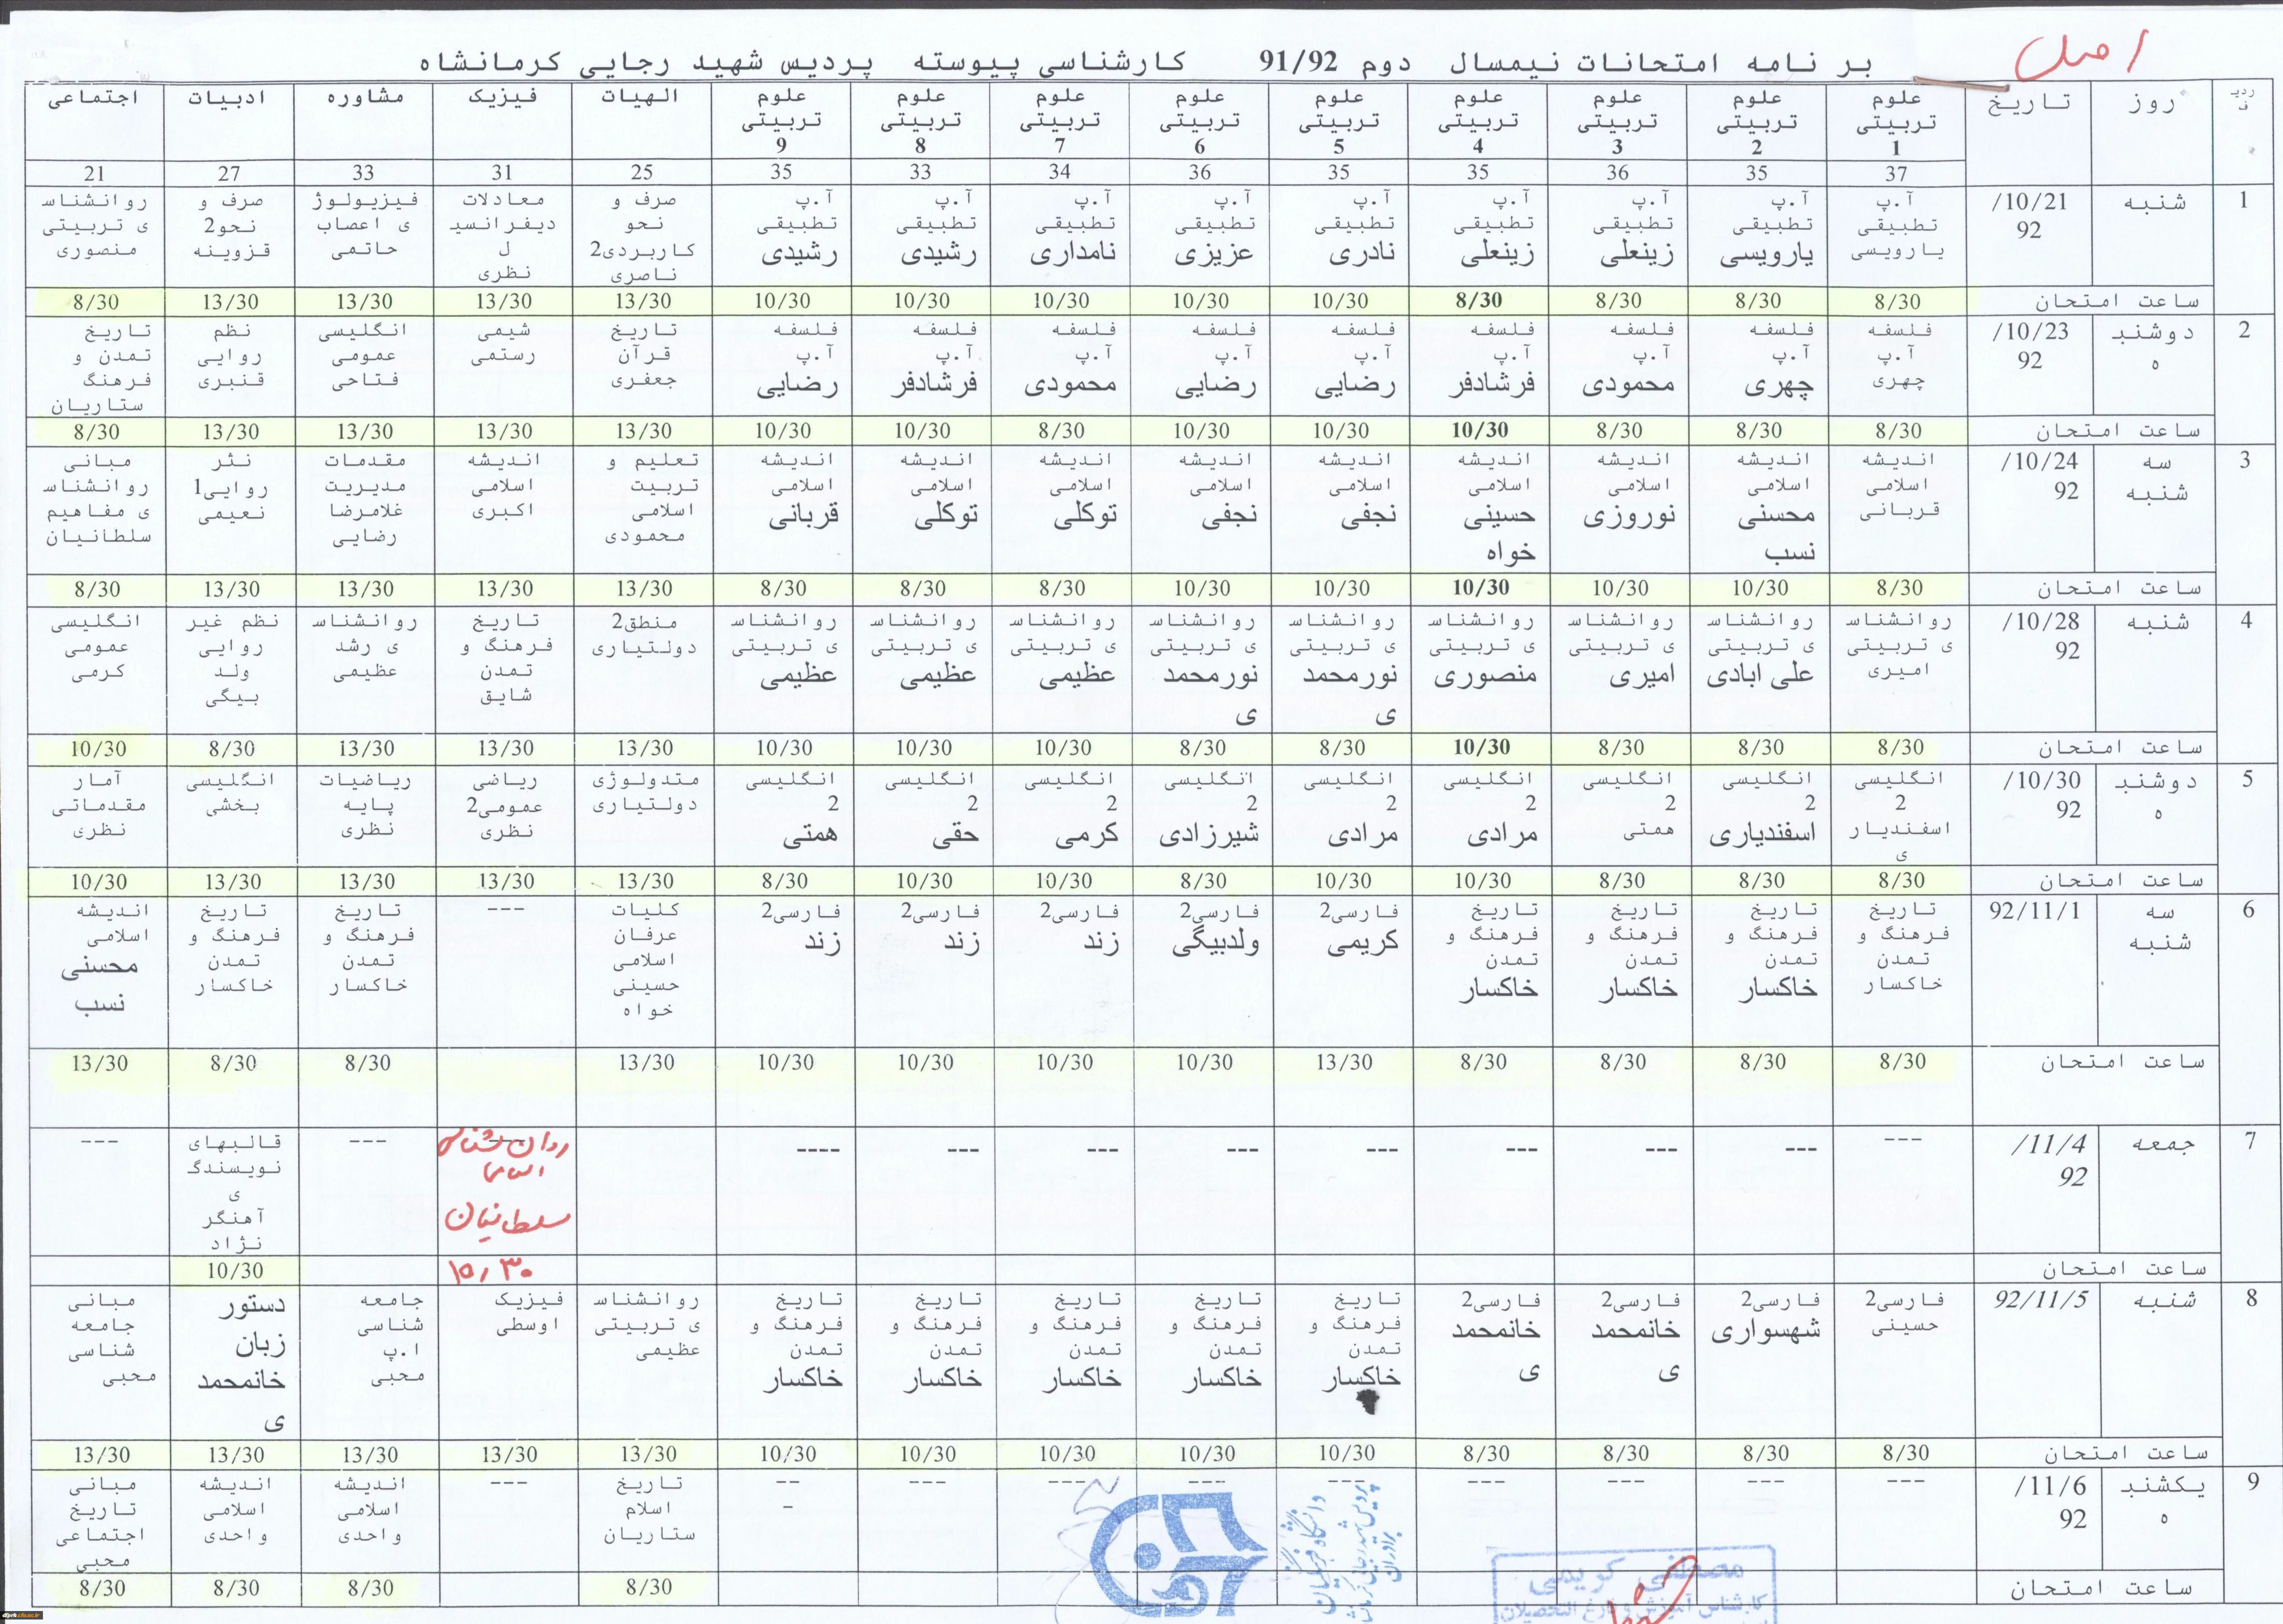 اصل
بر نامه امتحانات نیمسال دوم 91/92 کارشناسی پیوسته پردیس شهید رجایی کرمانشاه
ردیف روز تاریخ علوم تربیتی 1 علوم تربیتی 2 علوم تربیتی 3 علوم تربیتی 4 علوم تربیتی 5 علوم تربیتی 6 علوم تربیتی 7 علوم تربیتی 8 علوم تربیتی 9 الهیات فیزیک مشاوره ادبیات اجتماعی
37 35 36 35 35 36 34 33 35 25 31 33 27 21
1 شنبه 10/21/ 92 آ.پ تطبیقی یارویسی آ.پ تطبیقی یارویسی آ.پ تطبیقی زینعلی آ.پ تطبیقی زینعلی آ.پ تطبیقی نادری آ.پ تطبیقی عزیزی آ.پ تطبیقی نامداری آ.پ تطبیقی رشیدی آ.پ تطبیقی رشیدی صرف و نحو کاربردی2 ناصری معادلات دیفرانسیل نظری فیزیولوژی اعصاب حاتمی صرف و نحو2 قزوینه روانشناسی تربیتی منصوری
ساعت امتحان 8/30 8/30 8/30 8/30 10/30 10/30 10/30 10/30 10/30 13/30 13/30 13/30 13/30 8/30
2 دوشنبه 10/23/ 92 فلسفه آ.پ چهری فلسفه آ.پ چهری فلسفه آ.پ محمودی فلسفه آ.پ فرشادفر فلسفه آ.پ رضایی فلسفه آ.پ رضایی فلسفه آ.پ محمودی فلسفه آ.پ فرشادفر فلسفه آ.پ رضایی تاریخ قرآن جعفری شیمی رستمی انگلیسی عمومی فتاحی نظم روایی قنبری تاریخ تمدن و فرهنگ ستاریان
ساعت امتحان 8/30 8/30 8/30 10/30 10/30 10/30 8/30 10/30 10/30 13/30 13/30 13/30 13/30 8/30
3 سه شنبه 10/24/ 92 اندیشه اسلامی قربانی اندیشه اسلامی محسنی نسب اندیشه اسلامی نوروزی اندیشه اسلامی حسینی خواه اندیشه اسلامی نجفی اندیشه اسلامی نجفی اندیشه اسلامی توکلی اندیشه اسلامی توکلی اندیشه اسلامی قربانی تعلیم و تربیت اسلامی محمودی اندیشه اسلامی اکبری مقدمات مدیریت غلامرضا رضایی نثر روایی1 نعیمی مبانی روانشناسی مفاهیم سلطانیان
ساعت امتحان 8/30 10/30 10/30 10/30 10/30 10/30 8/30 8/30 8/30 13/30 13/30 13/30 13/30 8/30
4 شنبه 10/28/ 92 روانشناسی تربیتی امیری روانشناسی تربیتی علی ابادی روانشناسی تربیتی امیری روانشناسی تربیتی منصوری روانشناسی تربیتی نورمحمدی روانشناسی تربیتی نورمحمدی روانشناسی تربیتی عظیمی روانشناسی تربیتی عظیمی روانشناسی تربیتی عظیمی منطق2 دولتیاری تاریخ فرهنگ و تمدن شایق روانشناسی رشد عظیمی نظم غیر روایی ولد بیگی انگلیسی عمومی کرمی
ساعت امتحان 8/30 8/30 8/30 10/30 8/30 8/30 10/30 10/30 10/30 13/30 13/30 13/30 8/30 10/30
5 دوشنبه 10/30/ 92 انگلیسی 2 اسفندیاری انگلیسی 2 اسفندیاری انگلیسی 2 همتی انگلیسی 2 مرادی انگلیسی 2 مرادی انگلیسی 2 شیرزادی انگلیسی 2 کرمی انگلیسی 2 حقی انگلیسی 2 همتی متدولوژی دولتیاری ریاضی عمومی2 نظری ریاضیات پایه نظری انگلیسی بخشی آمار مقدماتی نظری
ساعت امتحان 8/30 8/30 8/30 10/30 10/30 8/30 10/30 10/30 8/30 13/30 13/30 13/30 13/30 10/30
6 سه شنبه 92/11/1 تاریخ فرهنگ و تمدن خاکسار تاریخ فرهنگ و تمدن خاکسار تاریخ فرهنگ و تمدن خاکسار تاریخ فرهنگ و تمدن خاکسار فارسی2 کریمی فارسی2 ولدبیگی فارسی2 زند فارسی2 زند فارسی2 زند کلیات عرفان اسلامی حسینی خواه --- تاریخ فرهنگ و تمدن خاکسار تاریخ فرهنگ و تمدن خاکسار اندیشه اسلامی محسنی نسب
ساعت امتحان 8/30 8/30 8/30 8/30 13/30 10/30 10/30 10/30 10/30 13/30 8/30 8/30 13/30
7 جمعه 11/4/ 92 --- --- --- --- --- --- --- --- ---- روان شناسی اسلامی سلطانیان --- قالبهای نویسندگی آهنگر نژاد ---
ساعت امتحان ۱۰/۳۰ 10/30
8 شنبه 92/11/5 فارسی2 حسینی فارسی2 شهسواری فارسی2 خانمحمدی فارسی2 خانمحمدی تاریخ فرهنگ و تمدن خاکسار تاریخ فرهنگ و تمدن خاکسار تاریخ فرهنگ و تمدن خاکسار تاریخ فرهنگ و تمدن خاکسار تاریخ فرهنگ و تمدن خاکسار روانشناسی تربیتی عظیمی فیزیک اوسطی جامعه شناسی ا.پ محبی دستور زبان خانمحمدی مبانی جامعه شناسی محبی
ساعت امتحان 8/30 8/30 8/30 8/30 10/30 10/30 10/30 10/30 10/30 13/30 13/30 13/30 13/30 13/30
9 یکشنبه 11/6/ 92 --- --- --- --- --- --- --- --- --- تاریخ اسلام ستاریان --- اندیشه اسلامی واحدی اندیشه اسلامی واحدی مبانی تاریخ اجتماعی محبی
ساعت امتحان 8/30 8/30 8/30 8/30
دانشگاه فرهنگیان
پردیس شهید رجایی کرمانشاه
برادران
مصطفی کریمی
کارشناس آموزش و فارغ التحصیلان